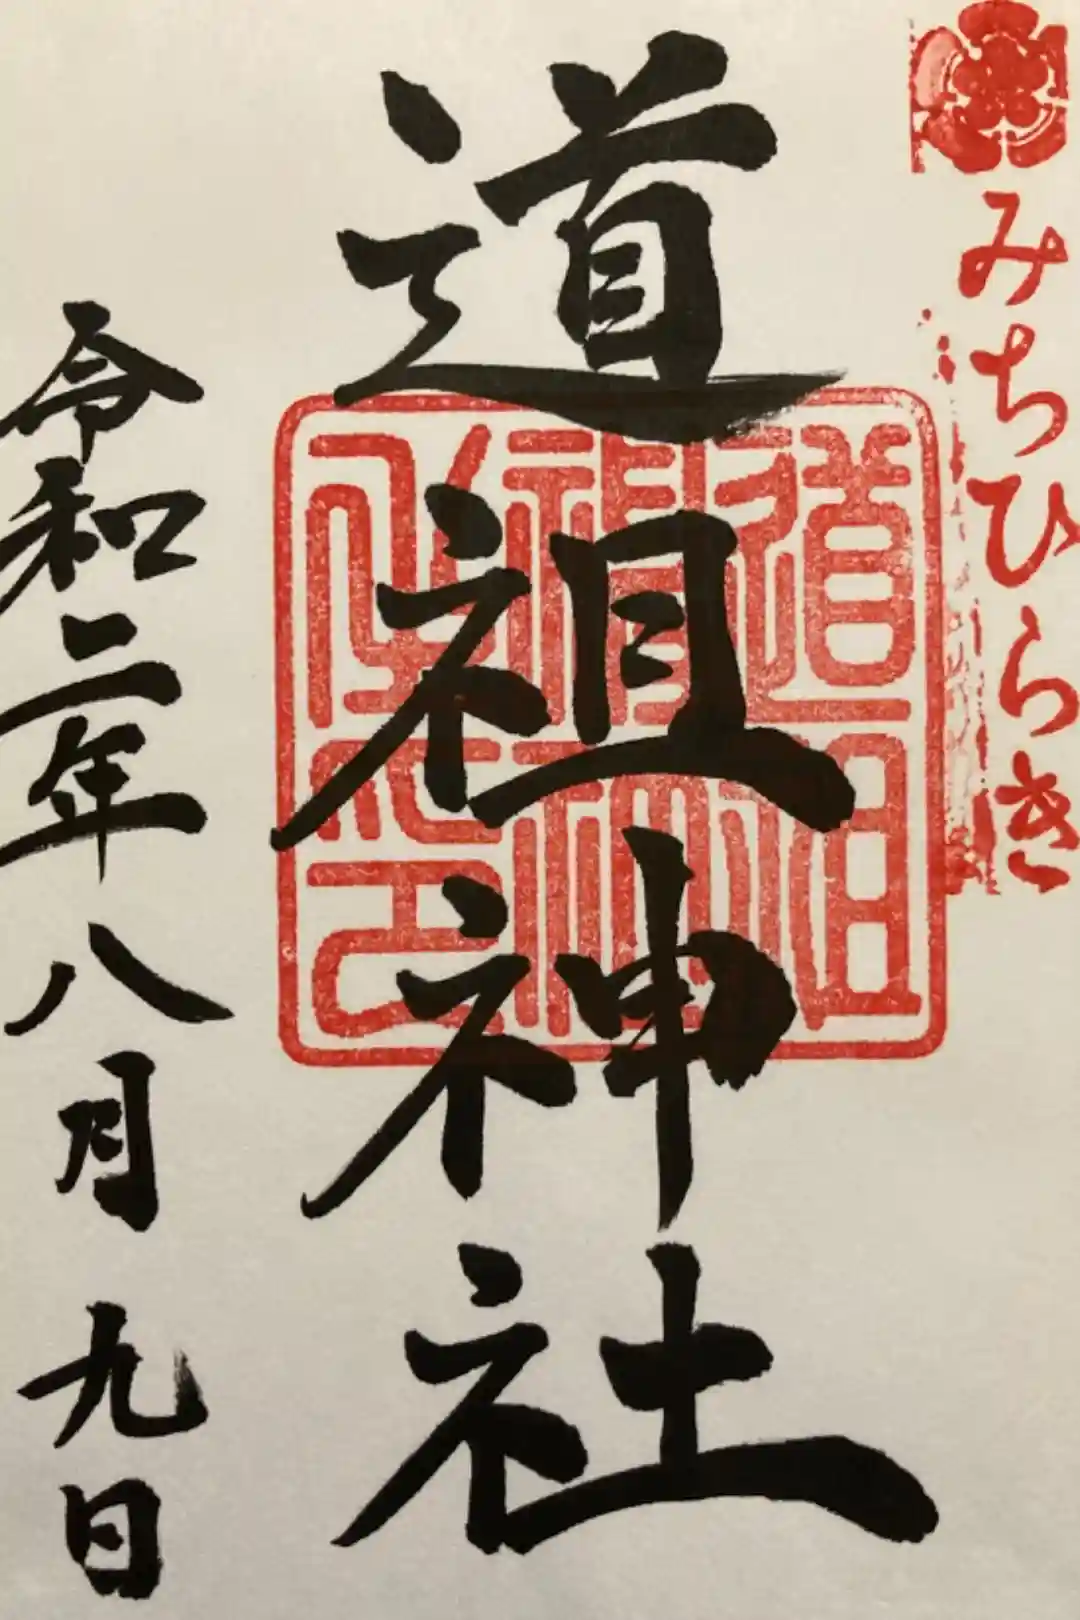 みちひらき
道祖神社
道祖神社
令和二年八月九日